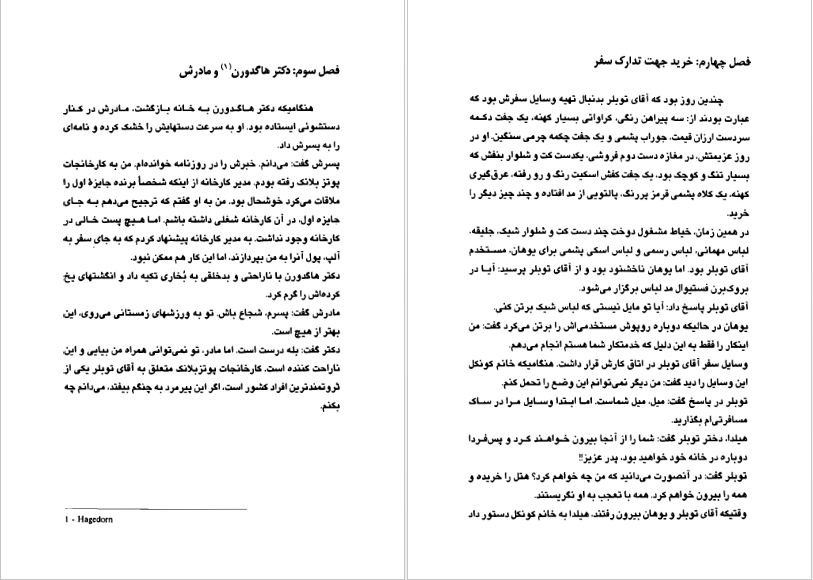 فصل سوم: دکتر هاگدورن(۱) و مادرش
هنگامیکه دکتر هاگدورن به خانه بازگشت، مادرش در کنار
دستشوئی ایستاده بود. او به سرعت دستهایش را خشک کرده و نامه‌ای
را به پسرش داد.
پسرش گفت: می‌دانم. خبرش را در روزنامه خوانده‌ام. من به کارخانجات
پوتز بلانک رفته بودم. مدیر کارخانه از اینکه شخصاً برنده جایزهٔ اول را
ملاقات می‌کرد خوشحال بود. من به او گفتم که ترجیح می‌دهم به جای
جایزه اول، در آن کارخانه شغلی داشته باشم. اما هیچ پست خالی در
کارخانه وجود نداشت. به مدیر کارخانه پیشنهاد کردم که به جای سفر به
آلپ، پول آنرا به من بپردازند، اما این کار هم ممکن نبود.
دکتر هاگدورن با ناراحتی و بدخلقی به بُخاری تکیه داد و انگشتهای یخ
کرده‌اش را گرم کرد.
مادرش گفت: پسرم، شجاع باش. تو به ورزشهای زمستانی می‌روی، این
بهتر از هیچ است.
دکتر گفت: بله درست است. اما مادر، تو نمی‌توانی همراه من بیایی و این،
ناراحت کننده است. کارخانجات پوتزبلانک متعلق به آقای توبلر یکی از
ثروتمندترین افراد کشور است، اگر این پیرمرد به چنگم بیفتد، می‌دانم چه
بکنم.
۱ - Hagedorn
فصل چهارم: خرید جهت تدارک سفر
چندین روز بود که آقای توبلر بدنبال تهیه وسایل سفرش بود که
عبارت بودند از: سه پیراهن رنگی، کراواتی بسیار کهنه، یک جفت دکمه
سردست ارزان قیمت، جوراب پشمی و یک جفت چکمه چرمی سنگین. او در
روز عزیمتش، در مغازه دست دوم فروشی، یکدست کت و شلوار بنفش که
بسیار تنگ و کوچک بود، یک جفت کفش اسکیت رنگ و رو رفته، عرق‌گیری
کهنه، یک کلاه پشمی قرمز پررنگ، پالتویی از مد افتاده و چند چیز دیگر را
خرید.
در همین زمان، خیاط مشغول دوخت چند دست کت و شلوار شیک، جلیقه،
لباس مهمانی، لباس رسمی و لباس اسکی پشمی برای یوهان، مستخدم
آقای توبلر بود. اما یوهان ناخشنود بود و از آقای توبلر پرسید: آیا در
بروک‌برن فستیوال مد لباس برگزار می‌شود.
آقای توبلر پاسخ داد: آیا تو مایل نیستی که لباس شیک برتن کنی.
یوهان در حالیکه دوباره روپوش مستخدمی‌اش را برتن می‌کرد گفت: من
اینکار را فقط به این دلیل که خدمتکار شما هستم انجام می‌دهم.
وسایل سفر آقای توبلر در اتاق کارش قرار داشت. هنگامیکه خانم کونکل
این وسایل را دید گفت: من دیگر نمی‌توانم این وضع را تحمل کنم.
توبلر در پاسخ گفت: میل، میل شماست. اما ابتدا وسایل مرا در ساک
مسافرتی‌ام بگذارید.
هیلدا، دختر توبلر گفت: شما را از آنجا بیرون خواهند کرد و پس‌فردا
دوباره در خانه خود خواهید بود، پدر عزیز!!
توبلر گفت: در آنصورت می‌دانید که من چه خواهم کرد؟ هتل را خریده و
همه را بیرون خواهم کرد. همه با تعجب به او نگریستند.
وقتیکه آقای توبلر و یوهان بیرون رفتند، هیلدا به خانم کونکل دستور داد